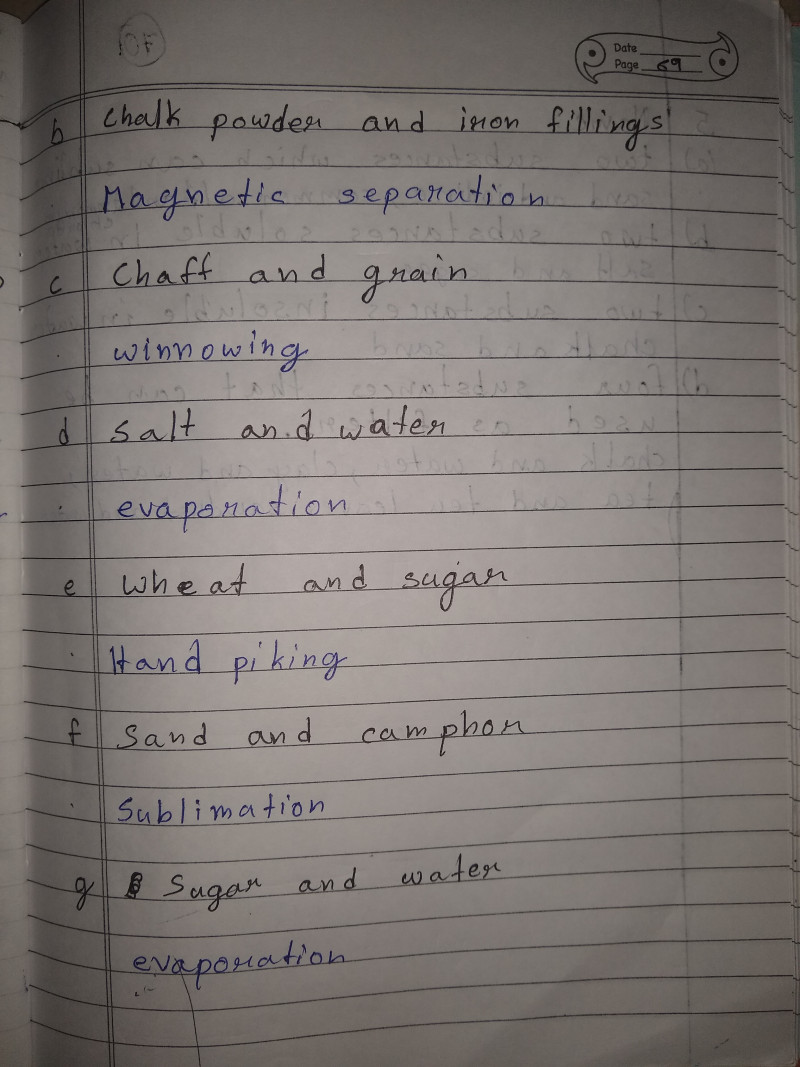 OF
Date
Page 69
b Chalk powder and iron fillings
Magnetic separation
c Chaff and grain
winnowing
d Salt and water
evaporation
e Wheat and sugar
Hand piking
f Sand and camphor
Sublimation
g Sugar and water
evaporation